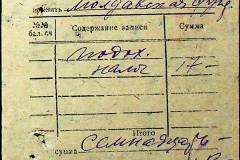 Молдавская
№№ бал. сч Содержание записи Сумма
подох. налог 17 -
Итого
сумма Семнадцать